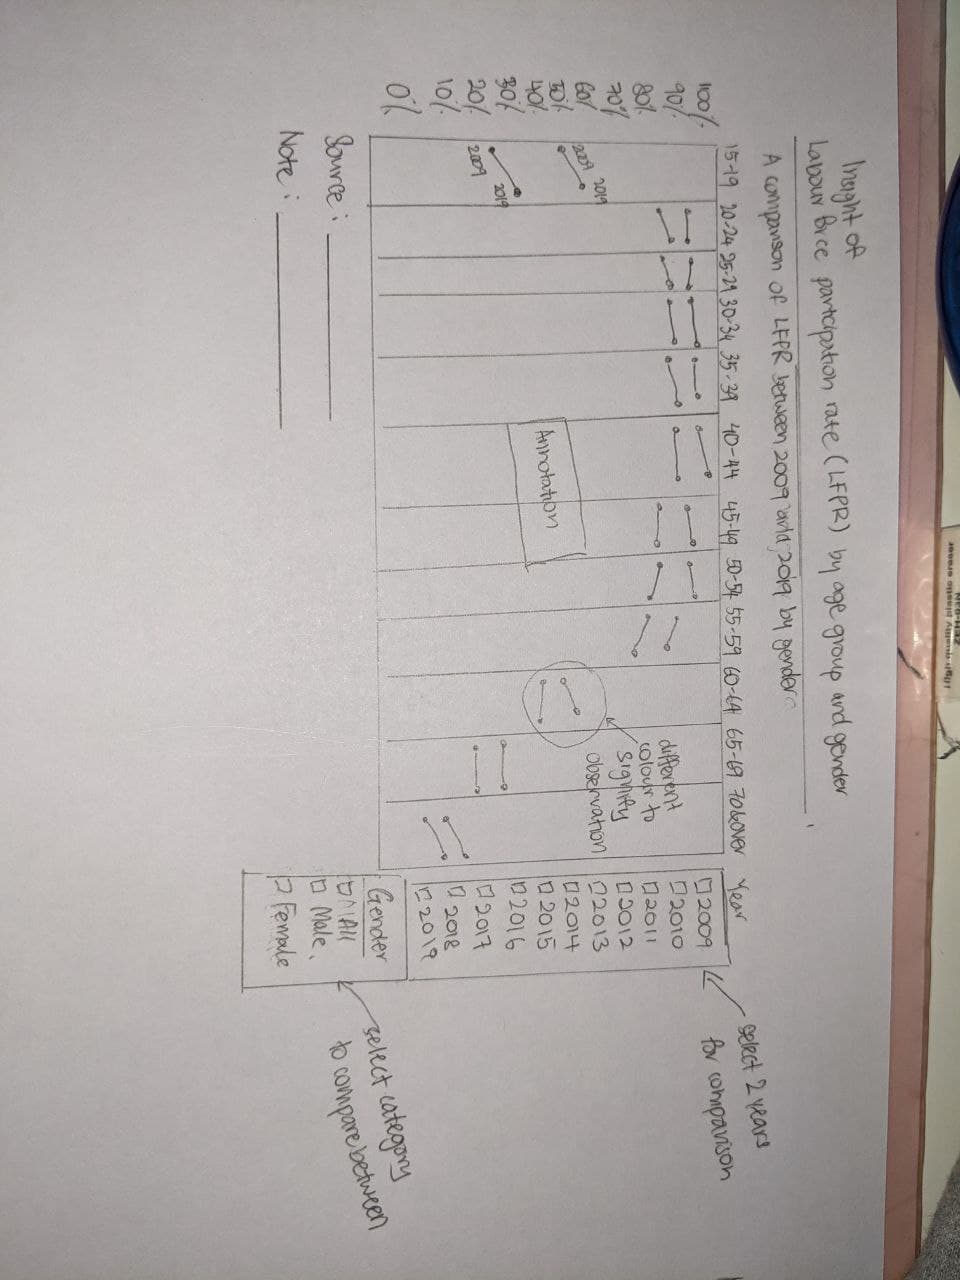 High quality plastic eraser
Insight of
Labour force participation rate (LFPR) by age group and gender
A comparison of LFPR between 2009 and 2019 by gender
15-19 20-24 25-29 30-34 35-39 40-44 45-49 50-54 55-59 60-64 65-69 70&over
100%
90%
80%
70%
60%
50%
40%
30%
20%
10%
0%
2009 2019
2009 2019
Annotation
different
colour to
signify
observation
Year
2009
2010
2011
2012
2013
2014
2015
2016
2017
2018
2019
select 2 years
for comparison
Gender
All
Male
Female
select category
to compare between
Source:
Note: